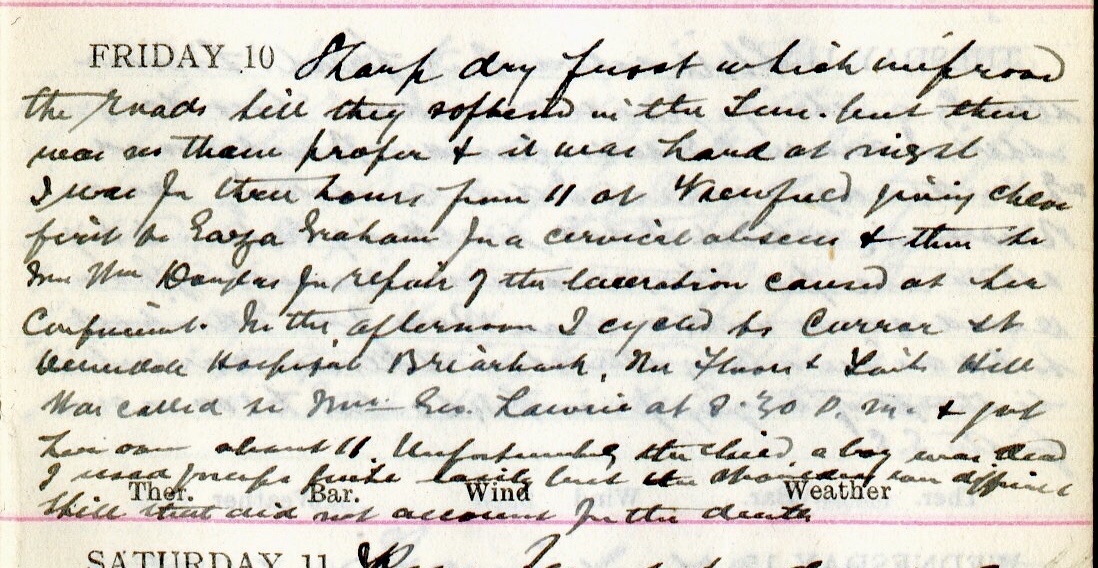 FRIDAY 10 Sharp dry frost which improved
the roads till they softened in the Sun. but there
was no thaw proper & it was hard at night
I was for three hours from 11 at giving chloro
first to Graham for a cervical abscess & then to
Mrs Wm Douglas for repair of the laceration caused at her
Confinement. In the afternoon I cycled to Currar St
Hospital Briarbank, & Hill
Was called to Mrs. Geo. Lawrie at 8.30 P.M. & got
her over about 11. Unfortunately the child, a boy was dead
I used forceps quite easily but the shoulders were difficult
Still that did not account for the death
Ther. Bar. Wind Weather
SATURDAY 11